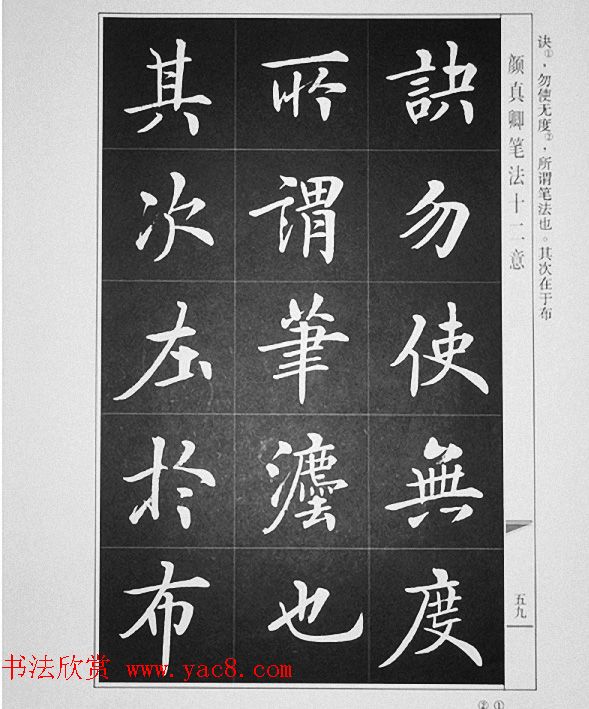 诀①，勿使无度②，所谓笔法也。其次在于布
颜真卿笔法十二意
訣勿使無度
所謂筆灋也
其次在於布
五九
② ①
书法欣赏 www.yac8.com